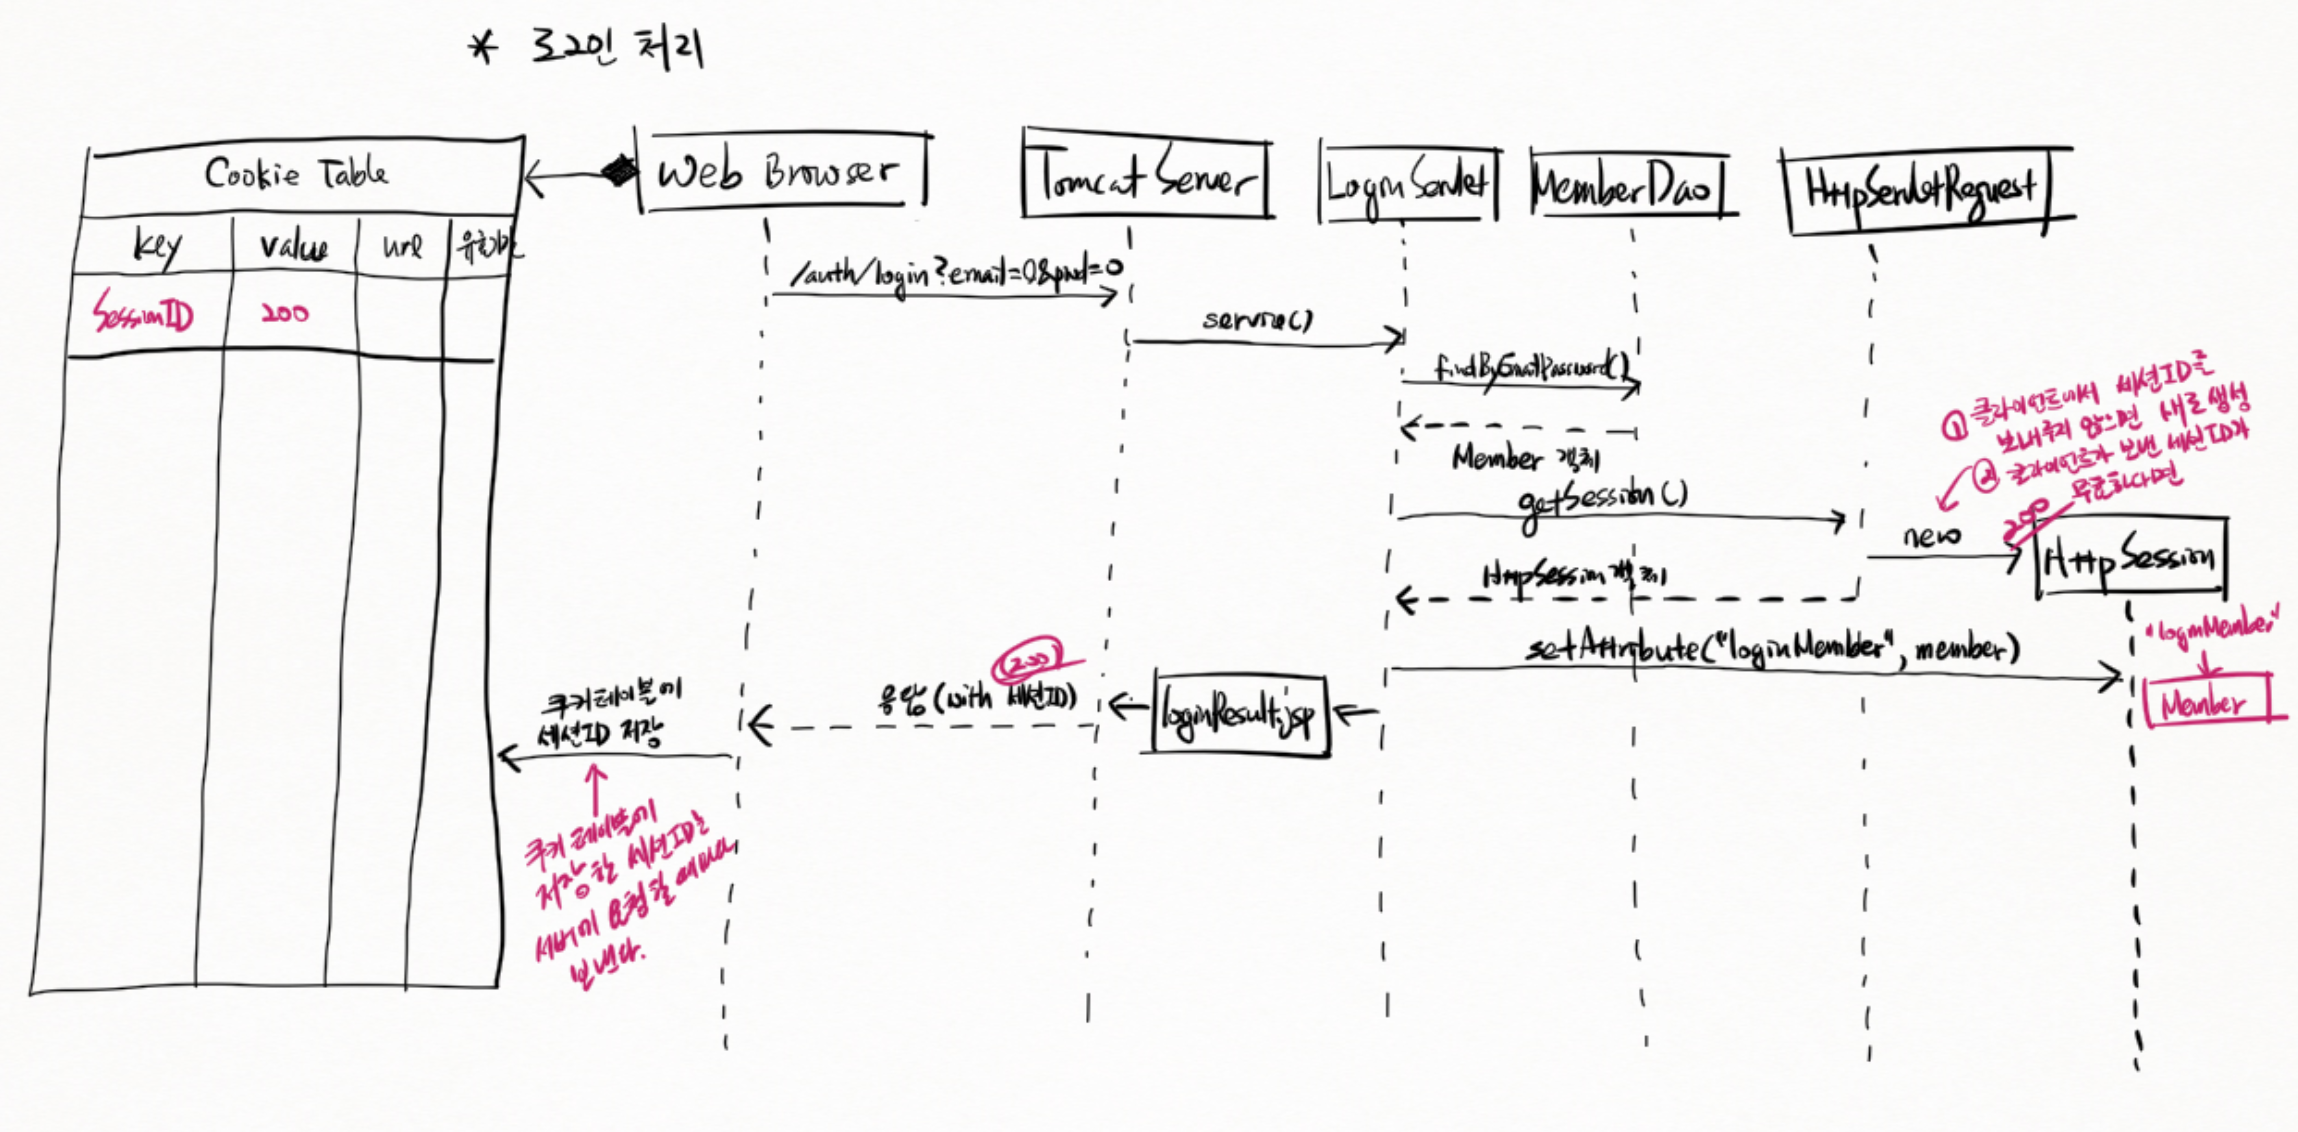 * 로그인 처리
Cookie Table
key value url 유효기간
SessionID 200
Web Browser
Tomcat Server
LoginServlet
MemberDao
HttpServletRequest
/auth/login?email=0&pwd=0
service()
findByEmailPassword()
Member 객체
getSession()
① 클라이언트에서 세션ID를
보내주지 않으면 새로 생성
② 클라이언트가 보낸 세션ID가
무효하다면
new
200
HttpSession
HttpSession 객체
setAttribute("loginMember", member)
"loginMember"
Member
loginResult.jsp
(200)
응답 (with 세션ID)
쿠키테이블에
세션ID 저장
쿠키 테이블에
저장한 세션ID는
서버에 요청할 때마다
보낸다.